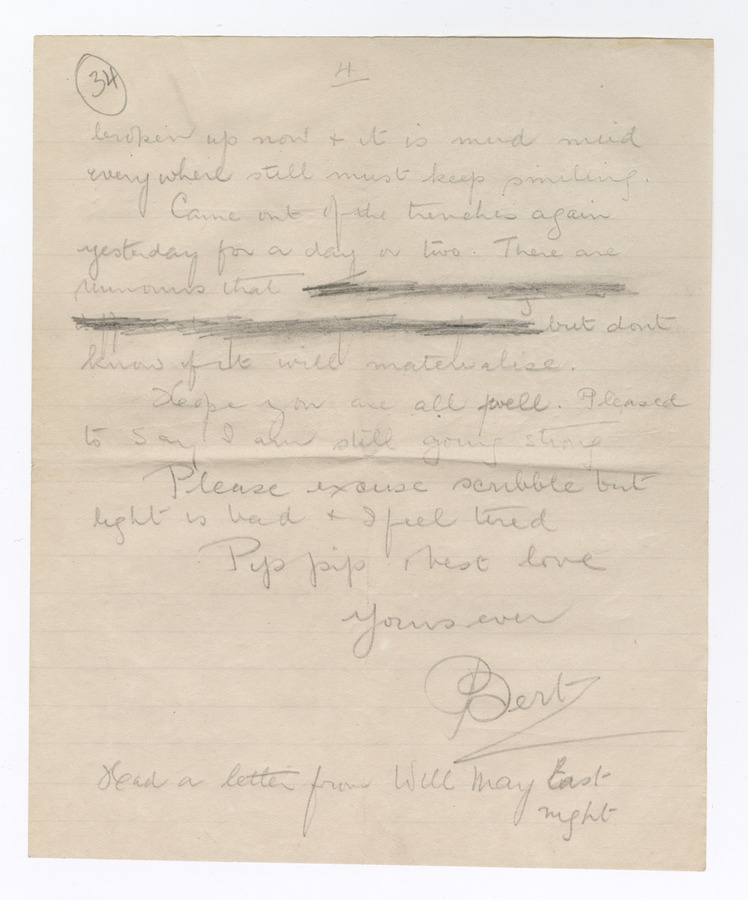 34
4
broken up now & it is mud mud
everywhere still must keep smiling.
Came out of the trenches again
yesterday for a day or two. There are
rumours that
but dont
know if it will materialise.
Hope you are all well. Pleased
to say I am still going strong
Please excuse scribble but
light is bad & I feel tired
Pip pip & best love
Yours ever
Bert
Had a letter from Will May Last
night